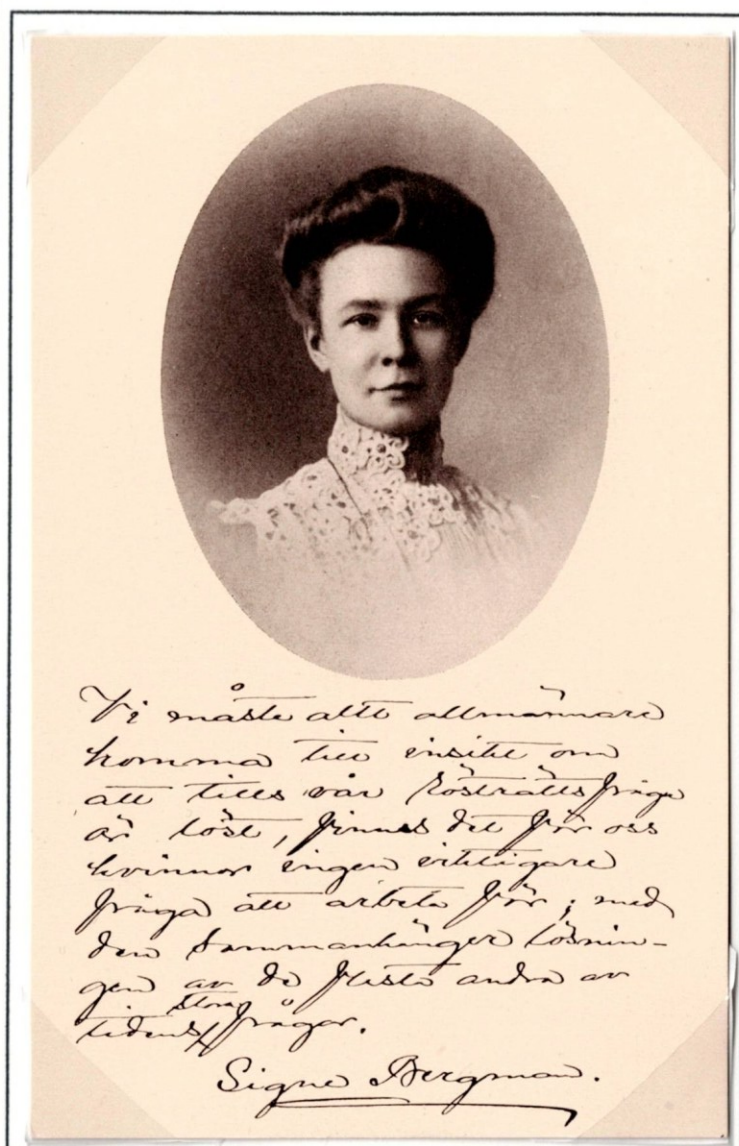 Vi måste allt allmännare
komma till insikt om
att tills vår rösträttsfråga
är löst, finnes det för oss
kvinnor ingen viktigare
fråga att arbeta för; med
den sammanhänger lösnin-
gen av de flesta andra av
tidens stora frågor.
Signe Bergman.